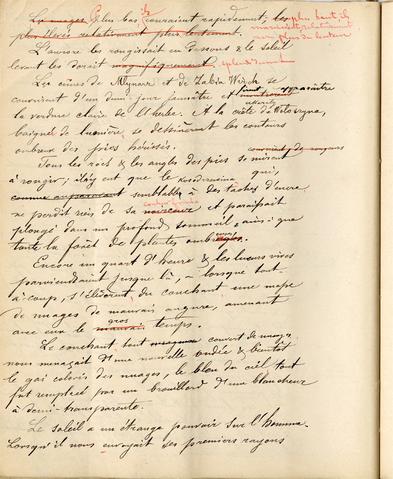 Les nuages Plus bas ils couraient rapidement; les plus haut ils
plus élevés relativement plus lentement.
L'aurore les rougissait en dessous & le soleil
levant les dorait magnifiquement splendidement
Les cimes de Mlynarz et de Zabia Wieh se
couvrirent d'un demi-jour jaunâtre et firent apparaître
la verdure claire de l'herbe. A la crête de Woloszyna,
baignée de lumière, se dessinèrent les contours
ombreux des pics hérissés.
Tous les rocs & les angles des pics se mirent
à rougir; il n'y eut que le Kosodrzewina qui,
comme auparavant semblable à des taches d'encre
ne perdit rien de sa noirceur et paraissait
plongé dans un profond sommeil, ainsi que
toute la forêt de plantes
Encore un quart d'heure & les lueurs vives
parviendraient jusque là, – lorsque tout-
à-coup, s'élevèrent du couchant une masse
de nuages de mauvais augure, amenant
avec eux le gros mauvais temps.
Le couchant tout couvert de nuages
nous menaçait d'une nouvelle ondée & bientôt
le gai coloris des nuages, le bleu du ciel tout
fut remplacé par un brouillard d'une blancheur
à demi-transparente.
Le soleil a un étrange pouvoir sur l'homme.
Lorsqu'il nous envoyait ses premiers rayons